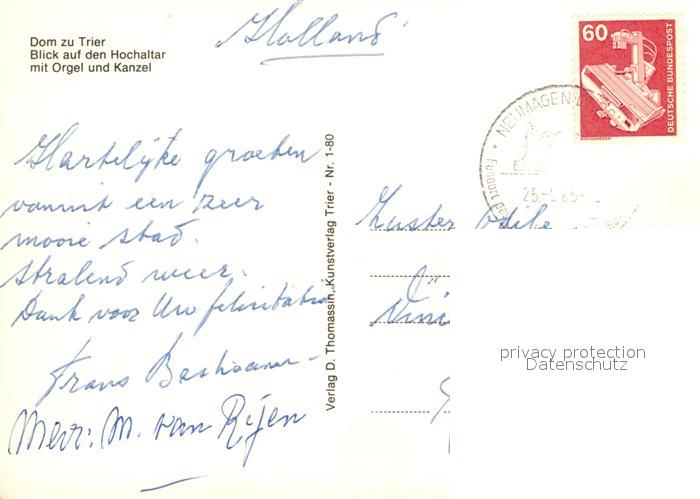 Dom zu Trier
Blick auf den Hochaltar
mit Orgel und Kanzel
Holland
60
DEUTSCHE BUNDESPOST
NEUMAGEN
25
Hartelijke groeten
vanuit een zeer
mooie stad.
Stralend weer.
Dank voor Uw felicitatie
Frans
Mevr: M. van Rijen
Verlag D. Thomassin, Kunstverlag Trier - Nr. 1-80
Zuster
privacy protection
Datenschutz